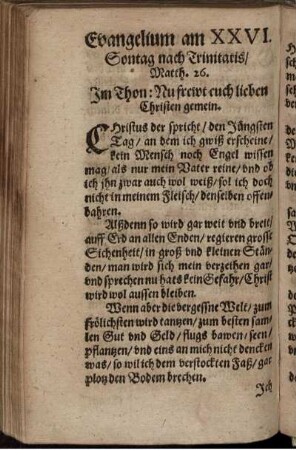 Evangelium am XXVI.
Sontag nach Trinitatis/
Matth. 26.
Im Thon: Nu frewt euch lieben
Christen gemein.
CHristus der spricht/ den Jüngsten
Tag/ an dem ich gwiß erscheine/
kein Mensch noch Engel wissen
mag/ als nur mein Vater reine/ vnd ob
ich jhn zwar auch wol weiß/ sol ich doch
nicht in meinem Fleisch/ denselben offen-
bahren.
Alßdenn so wird gar weit vnd breit/
auff Erd an allen Enden/ regieren grosse
Sicherheit/ in groß vnd kleinen Stän-
den/ man wird sich mein verzeihen gar/
vnd sprechen nu hats kein Gefahr/ Christ
wird wol aussen bleiben.
Wenn aber die vergessne Welt/ zum
frölichsten wird tantzen/ zum besten sam-
len Gut vnd Geld/ flugs bawen/ seen/
pflantzen/ vnd eins an mich nicht dencken
was/ so wil ich dem verstockten Faß/ gar
plotz den Bodem brechen.
Ich